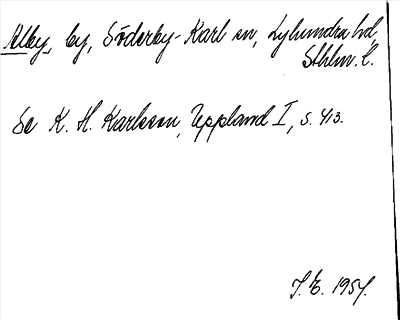 Alby, by, Söderby-Karl sn, Lyhundra hd,
Sthlm. l.
Se K. H. Karlsson, Uppland I, s. 413.
J. E. 1954.